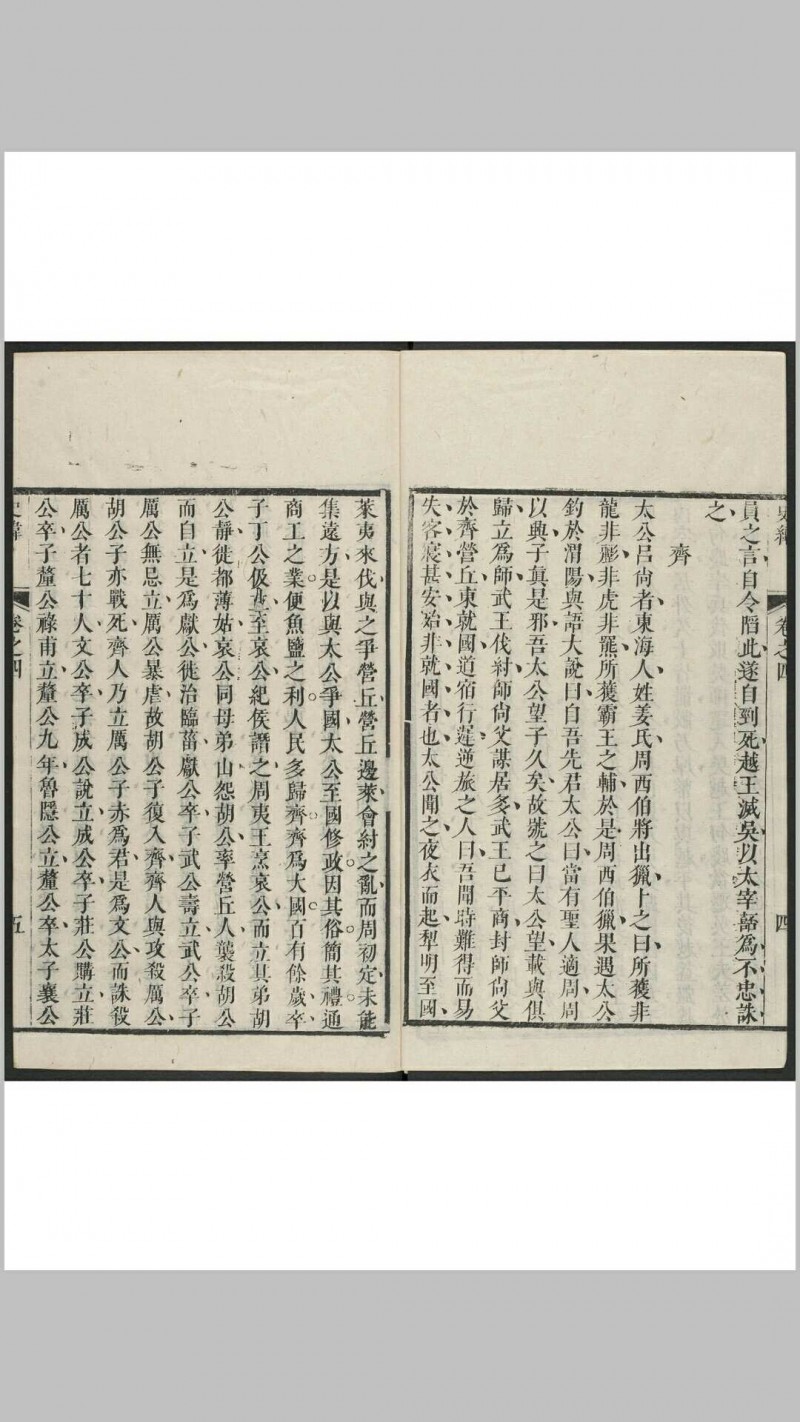 史緯 卷之四 四
員之言自令陷此遂自剄死越王滅吳以太宰嚭為不忠誅
之
齊
太公呂尚者東海人姓姜氏周西伯將出獵卜之曰所獲非
龍非彲非虎非羆所獲霸王之輔於是周西伯獵果遇太公
釣於渭陽與語大說曰自吾先君太公曰當有聖人適周周
以興子真是邪吾太公望子久矣故號之曰太公望載與俱
歸立為師武王伐紂師尚父謀居多武王已平商封師尚父
於齊營丘東就國道宿行遲逆旅之人曰吾聞時難得而易
失客寢甚安殆非就國者也太公聞之夜衣而起犁明至國
萊夷來伐與之爭營丘營丘邊萊會紂之亂而周初定未能
集遠方是以與太公爭國太公至國修政因其俗簡其禮通
商工之業便魚鹽之利人民多歸齊齊為大國百有餘歲卒
子丁公伋立至哀公紀侯譖之周夷王烹哀公而立其弟胡
公靜徙都薄姑哀公同母弟山怨胡公率營丘人襲殺胡公
而自立是為獻公徙治臨菑獻公卒子武公壽立武公卒子
厲公無忌立厲公暴虐故胡公子復入齊齊人與攻殺厲公
胡公子亦戰死齊人乃立厲公子赤為君是為文公而誅殺
厲公者七十人文公卒子成公說立成公卒子莊公購立莊
公卒子釐公祿甫立釐公九年魯隱公立釐公卒太子襄公
史緯 卷之四 五